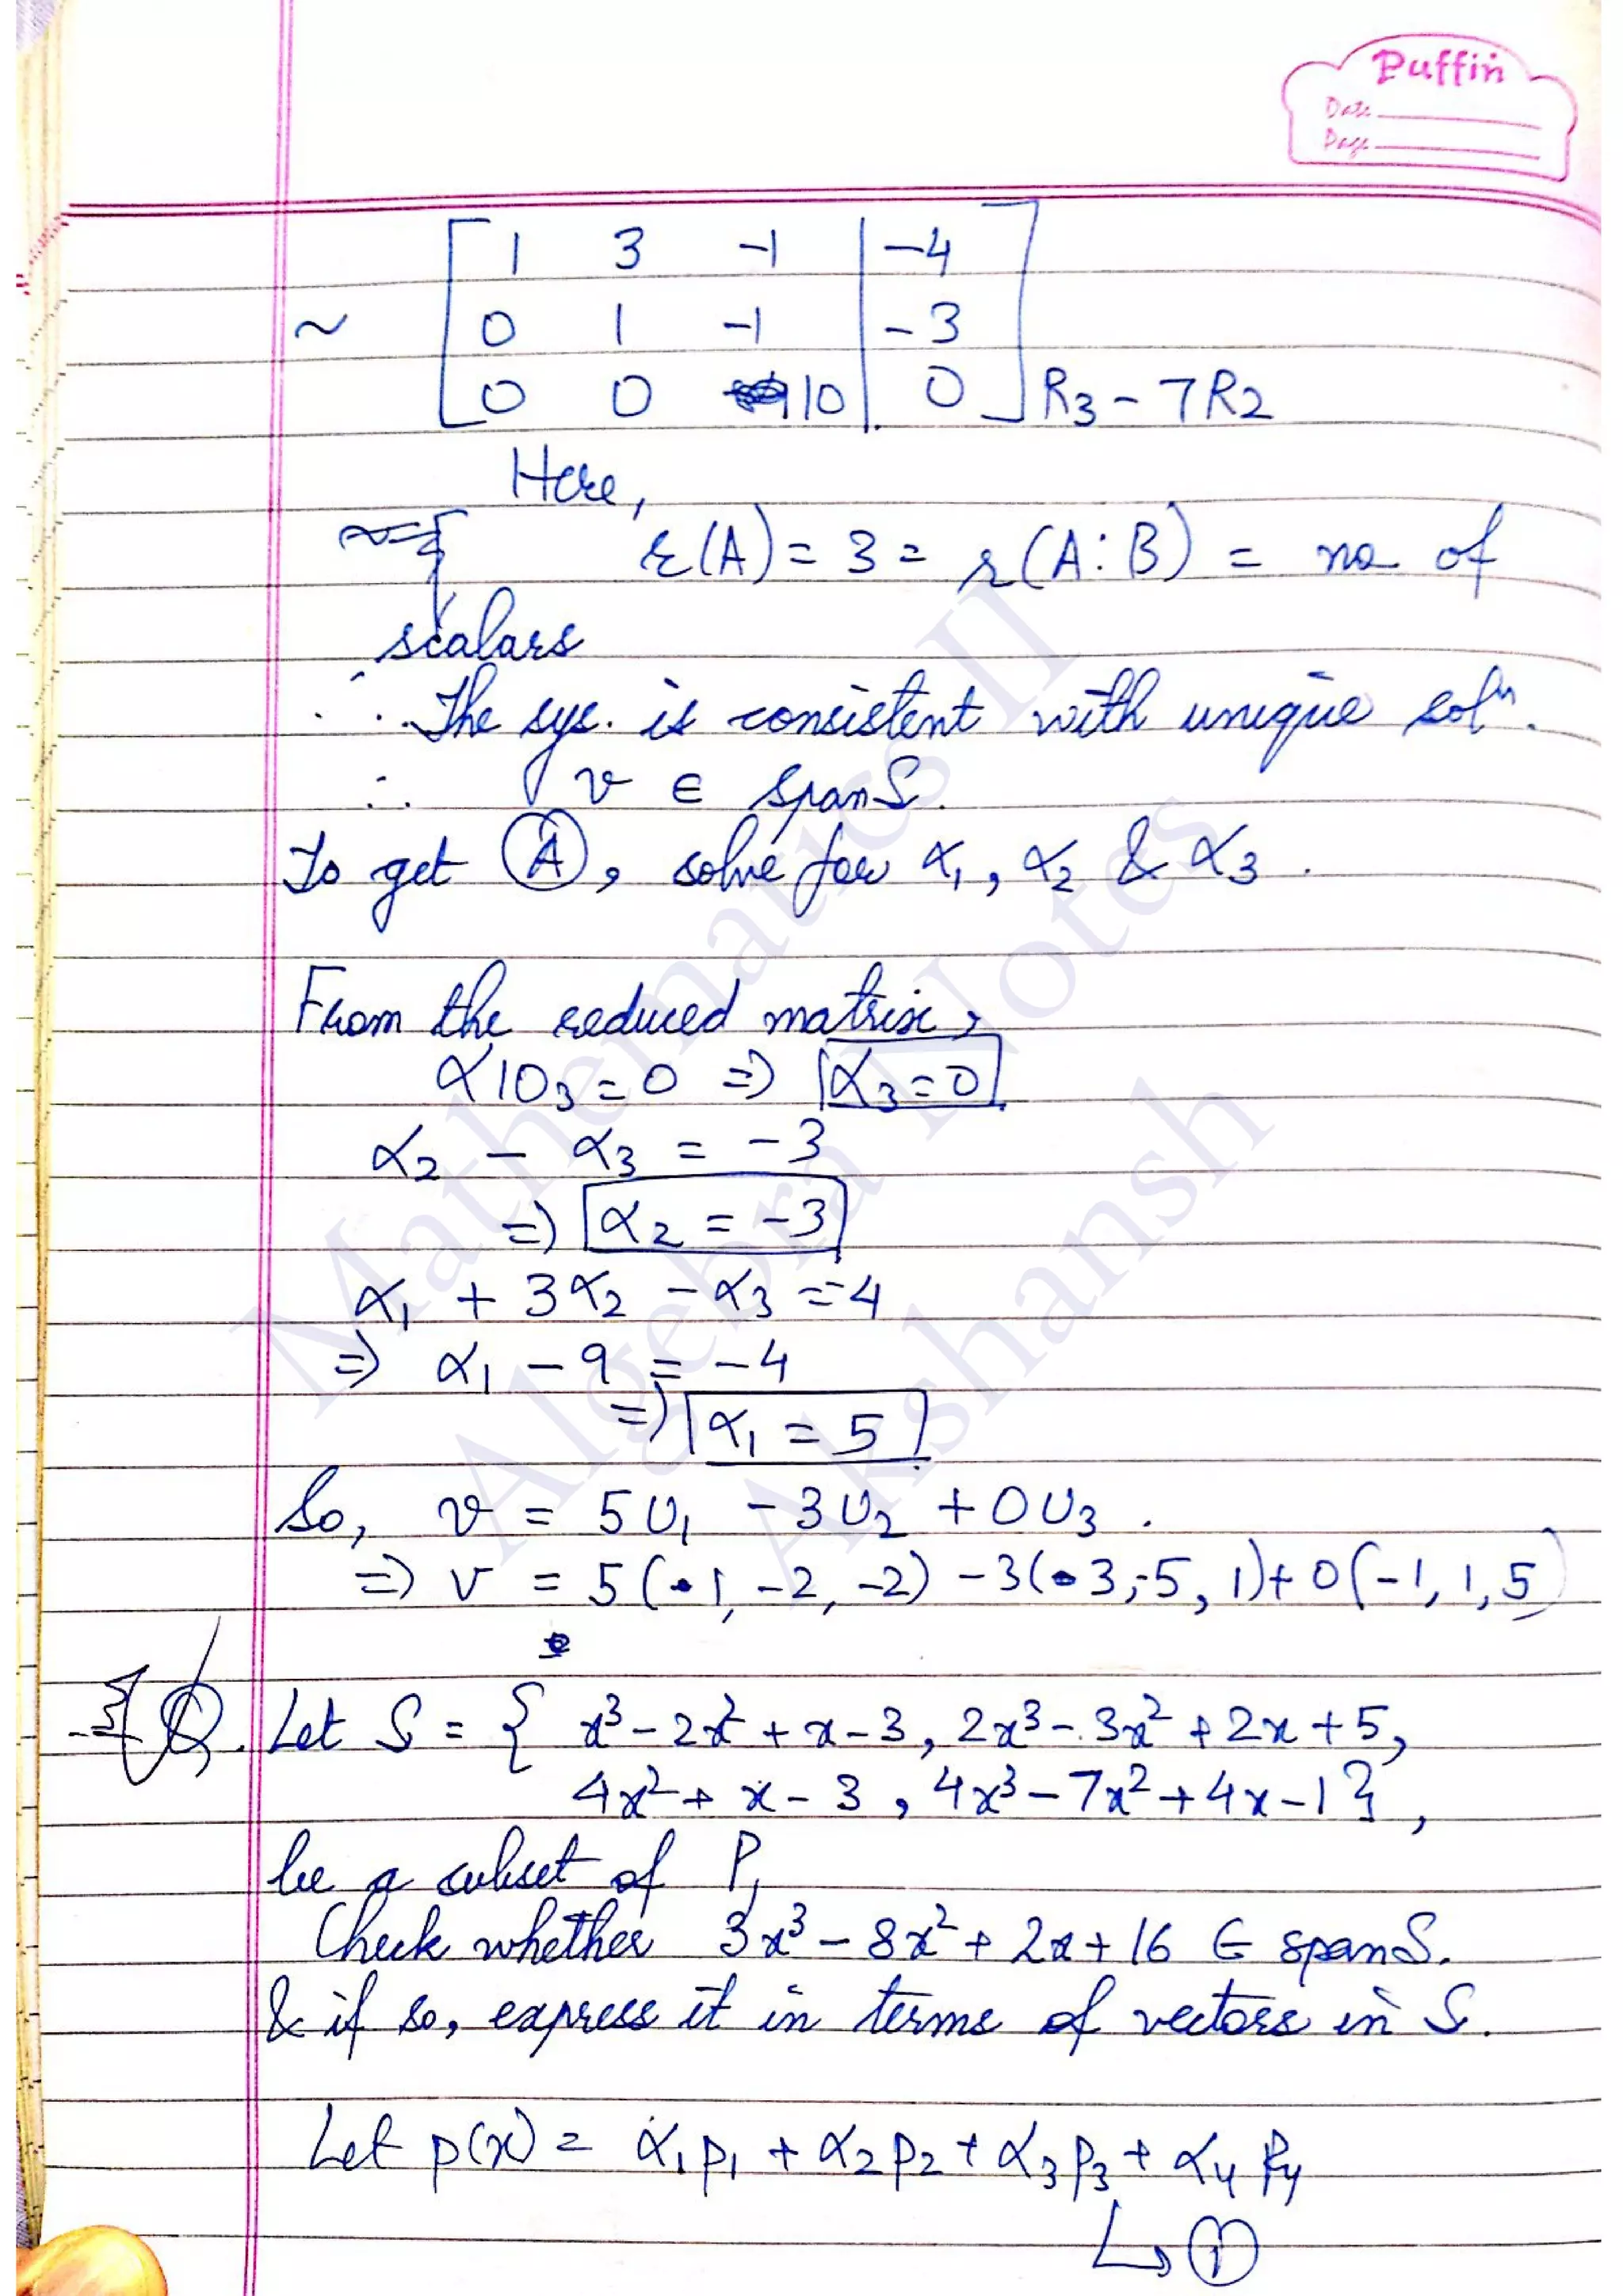 Puffin
Date
Page
1 3 -1 | -4
~ 0 1 -1 | -3
0 0 10 | 0 R3 - 7R2
Here,
r(A) = 3 = r(A:B) = no of
scalars
∴ The sys. is consistent with unique solⁿ.
∴ v ∈ span S.
To get Ⓐ, solve for α₁, α₂ & α₃.
From the reduced matrix,
α10₃ = 0 ⇒ α₃ = 0
α₂ - α₃ = -3
⇒ α₂ = -3
α₁ + 3α₂ - α₃ = -4
⇒ α₁ - 9 = -4
⇒ α₁ = 5
So, v = 5U₁ - 3U₂ + 0U₃.
⇒ v = 5(1, -2, -2) - 3(3, -5, 1) + 0(-1, 1, 5)
Q. Let S = { x³ - 2x² + x - 3, 2x³ - 3x² + 2x + 5,
4x² + x - 3, 4x³ - 7x² + 4x - 1 },
be a subset of P,
Check whether 3x³ - 8x² + 2x + 16 ∈ span S.
& if so, express it in terms of vectors in S.
Let p(x) = α₁p₁ + α₂p₂ + α₃p₃ + α₄p₄
↳ ①
Mathematics II
Algebra Notes
Akshansh